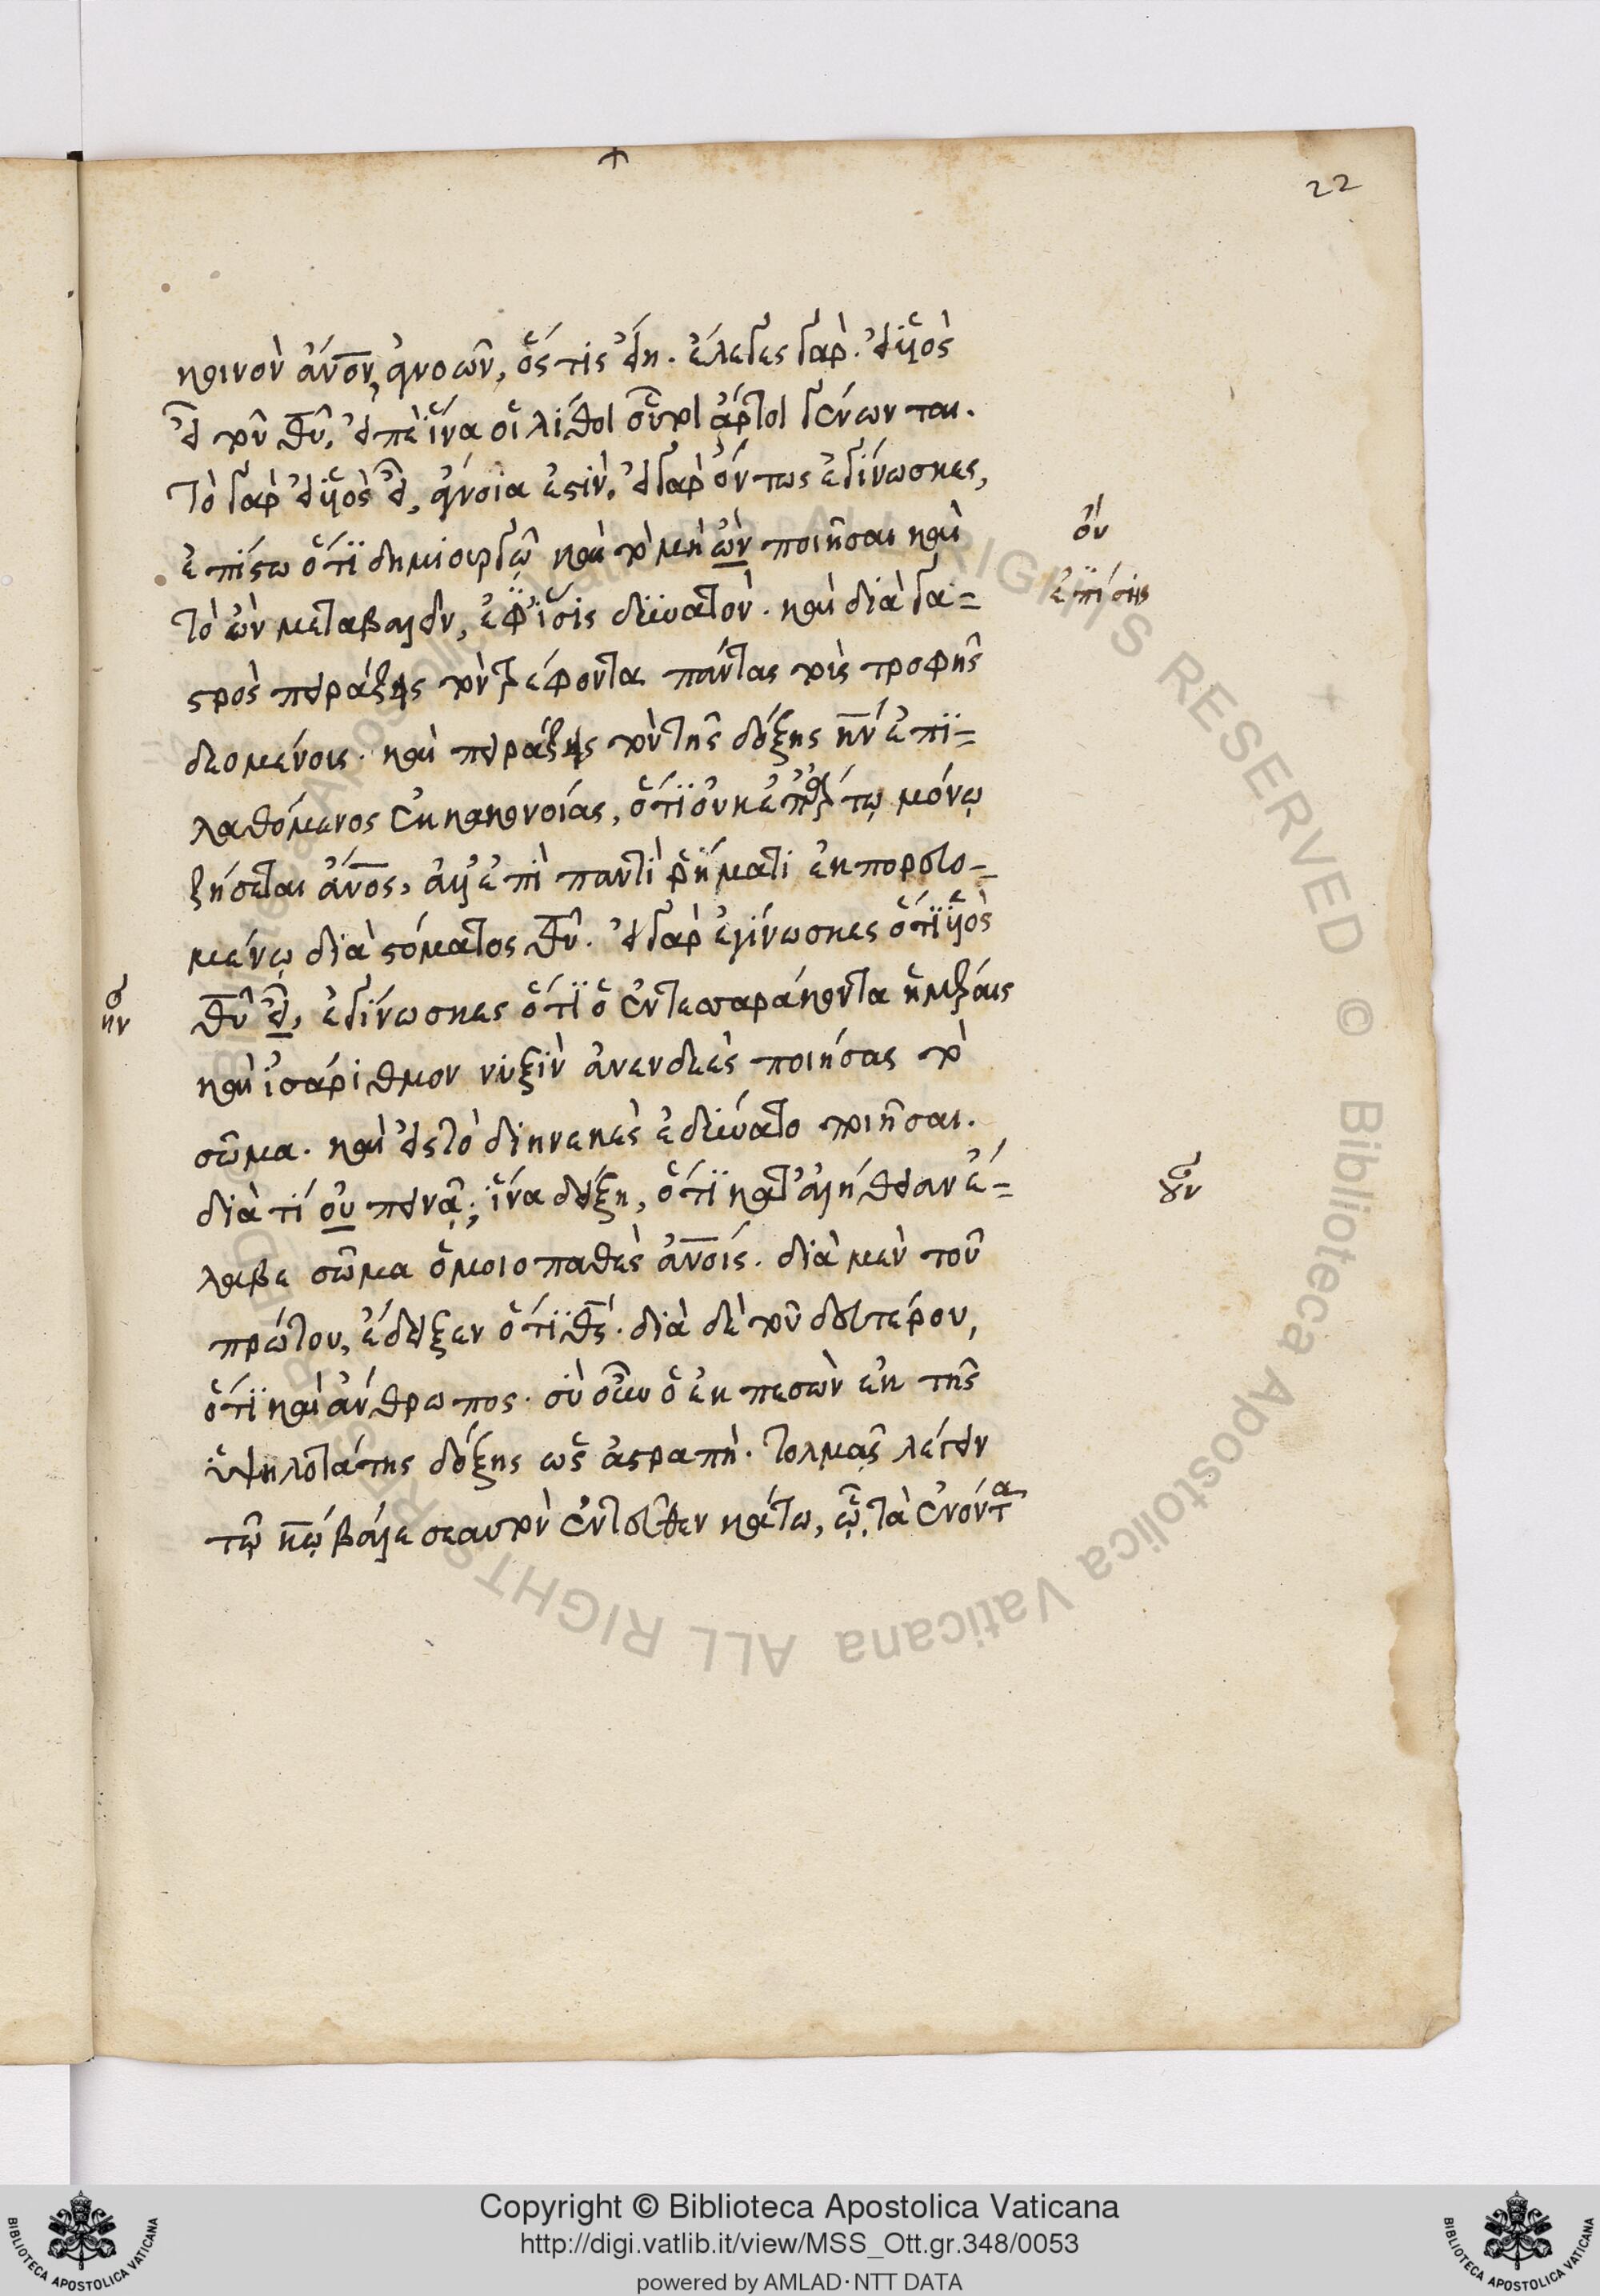 22
καινὸν ἄνον, ἀγνοῶν, ὅς τις εἴη. ἔλεγες γὰρ. εἰ υἱὸς
εἶ τοῦ θυ, εἰπὲ ἵνα οἱ λίθοι οὗτοι ἄρτοι γένωνται.
τὸ γὰρ εἰ υἱὸς εἶ, ἀγνοία ἐστὶν. εἰ γὰρ ὄντως ἐγίνωσκες,
ἐπίστω ὅτι δημιουργῶ καὶ τὸ μὴ ὢν ποιῆσαι καὶ
ὄν
τὸ ὢν μεταβαλεῖν, ἐφ' ἴσης δυνατόν. καὶ διὰ γα=
ἐπίσης
στρὸς πειράζεις τὸν τρέφοντα πάντας τοὺς τροφῆς
δεομένους. καὶ πειράζεις τὸν τῆς δόξης κν ἐπι=
λαθόμενος ἐκ κακονοίας, ὅτι οὐκ ἐπ' ἄρτῳ μόνῳ
ζήσεται ἄνος, ἀλλ' ἐπὶ παντὶ ῥήματι ἐκπορευο=
μένῳ διὰ στόματος θυ. εἰ γὰρ ἐγίνωσκες ὅτι υἱὸς
θυ εἶ, ἐγίνωσκες ὅτι ὁ ἐν τεσσαράκοντα ἡμέραις
ἦν
καὶ ἰσάριθμον νυξὶν ἀνενδεὲς ποιήσας τὸ
σῶμα. καὶ εἰς τὸ διηνεκὲς ἐδύνατο ποιῆσαι.
διὰ τί οὐ πεινᾷ; ἵνα δείξῃ, ὅτι κατ' ἀλήθειαν ἔ=
οὖν
λαβε σῶμα ὁμοιοπαθὲς ἀνοις. διὰ μὲν τοῦ
πρώτου, ἔδειξεν ὅτι θς. διὰ δὲ τοῦ δευτέρου,
ὅτι καὶ ἄνθρωπος. σὺ οὖν ὁ ἐκπεσὼν ἐκ τῆς
ὑψηλοτάτης δόξης ὡς ἀστραπὴ. τολμᾷς λέγειν
τῷ κῳ βάλε σεαυτὸν ἐντεῦθεν κάτω, ᾧ τὰ ἐνόντα
Copyright © Biblioteca Apostolica Vaticana
http://digi.vatlib.it/view/MSS_Ott.gr.348/0053
powered by AMLAD·NTT DATA
BIBLIOTECA APOSTOLICA VATICANA
BIBLIOTECA APOSTOLICA VATICANA
Biblioteca Apostolica Vaticana ALL RIGHTS RESERVED © Biblioteca Apostolica Vaticana ALL RIGHTS RESERVED ©